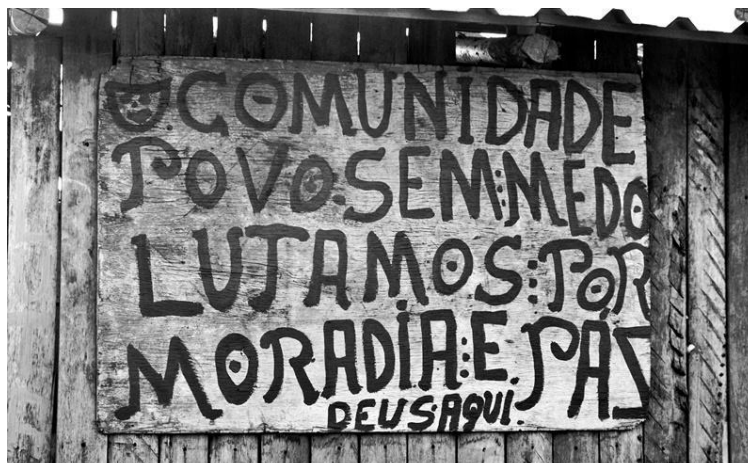 COMUNIDADE
POVO SEM MEDO
LUTAMOS POR
MORADIA E PÁZ
DEUS AQUI.